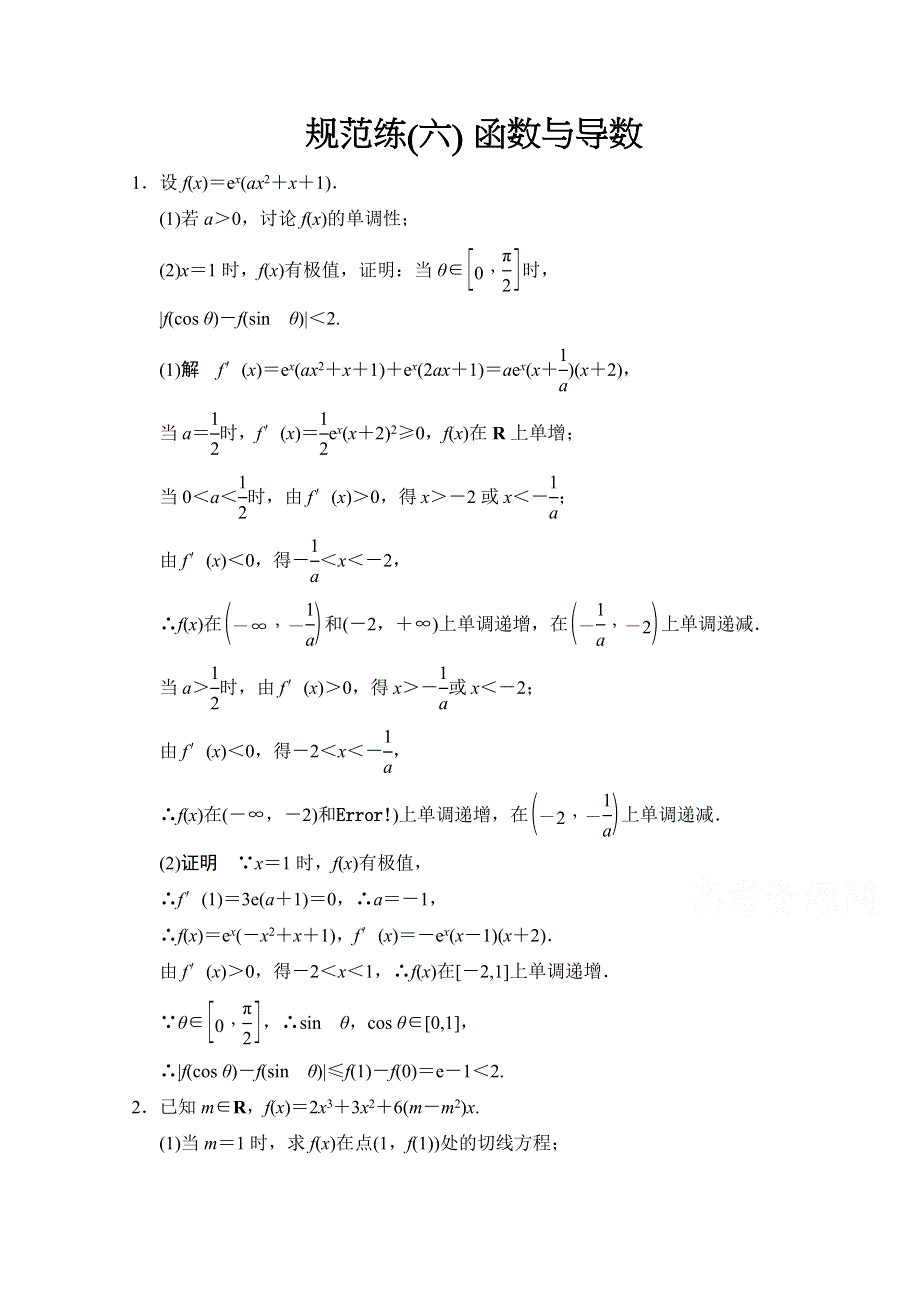 规范练(六) 函数与导数
1．设 f(x)＝eˣ(ax²＋x＋1)．
(1)若 a＞0，讨论 f(x)的单调性；
(2)x＝1 时，f(x)有极值，证明：当 θ∈[0，π/2]时，
|f(cos θ)－f(sin　θ)|＜2.
(1)解　f′(x)＝eˣ(ax²＋x＋1)＋eˣ(2ax＋1)＝aeˣ(x＋1/a)(x＋2)，
当 a＝1/2时，f′(x)＝1/2eˣ(x＋2)²≥0，f(x)在 R 上单增；
当 0＜a＜1/2时，由 f′(x)＞0，得 x＞－2 或 x＜－1/a；
由 f′(x)＜0，得－1/a＜x＜－2，
∴f(x)在(－∞，－1/a)和(－2，＋∞)上单调递增，在(－1/a，－2)上单调递减．
当 a＞1/2时，由 f′(x)＞0，得 x＞－1/a或 x＜－2；
由 f′(x)＜0，得－2＜x＜－1/a，
∴f(x)在(－∞，－2)和Error!)上单调递增，在(－2，－1/a)上单调递减．
(2)证明　∵x＝1 时，f(x)有极值，
∴f′(1)＝3e(a＋1)＝0，∴a＝－1，
高考资源网
∴f(x)＝eˣ(－x²＋x＋1)，f′(x)＝－eˣ(x－1)(x＋2)．
由 f′(x)＞0，得－2＜x＜1，∴f(x)在[－2,1]上单调递增．
∵θ∈[0，π/2]，∴sin　θ，cos θ∈[0,1]，
∴|f(cos θ)－f(sin　θ)|≤f(1)－f(0)＝e－1＜2.
2．已知 m∈R，f(x)＝2x³＋3x²＋6(m－m²)x.
(1)当 m＝1 时，求 f(x)在点(1，f(1))处的切线方程；